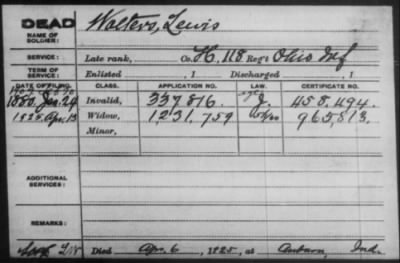 DEAD Walters, Lewis
NAME OF SOLDIER:
SERVICE: Late rank, Co. H, 118 Reg't Ohio Inf
TERM OF SERVICE: Enlisted , 1 Discharged , 1
DATE OF FILING. CLASS. APPLICATION NO. LAW. CERTIFICATE NO.
1880, Jan. 24 Invalid, 337.816. J. 458.494.
1925, Apr. 13 Widow, 1231.759 965813.
Minor,
ADDITIONAL SERVICES:
REMARKS:
Died Apr. 6, 1925, at Auburn, Ind.